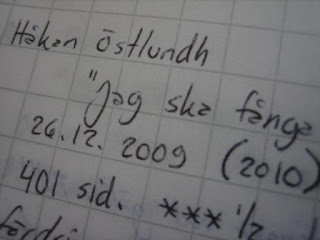 Håkan Östlundh
"Jag ska fånga
26.12. 2009 (2010)
401 sid. *** 1/2